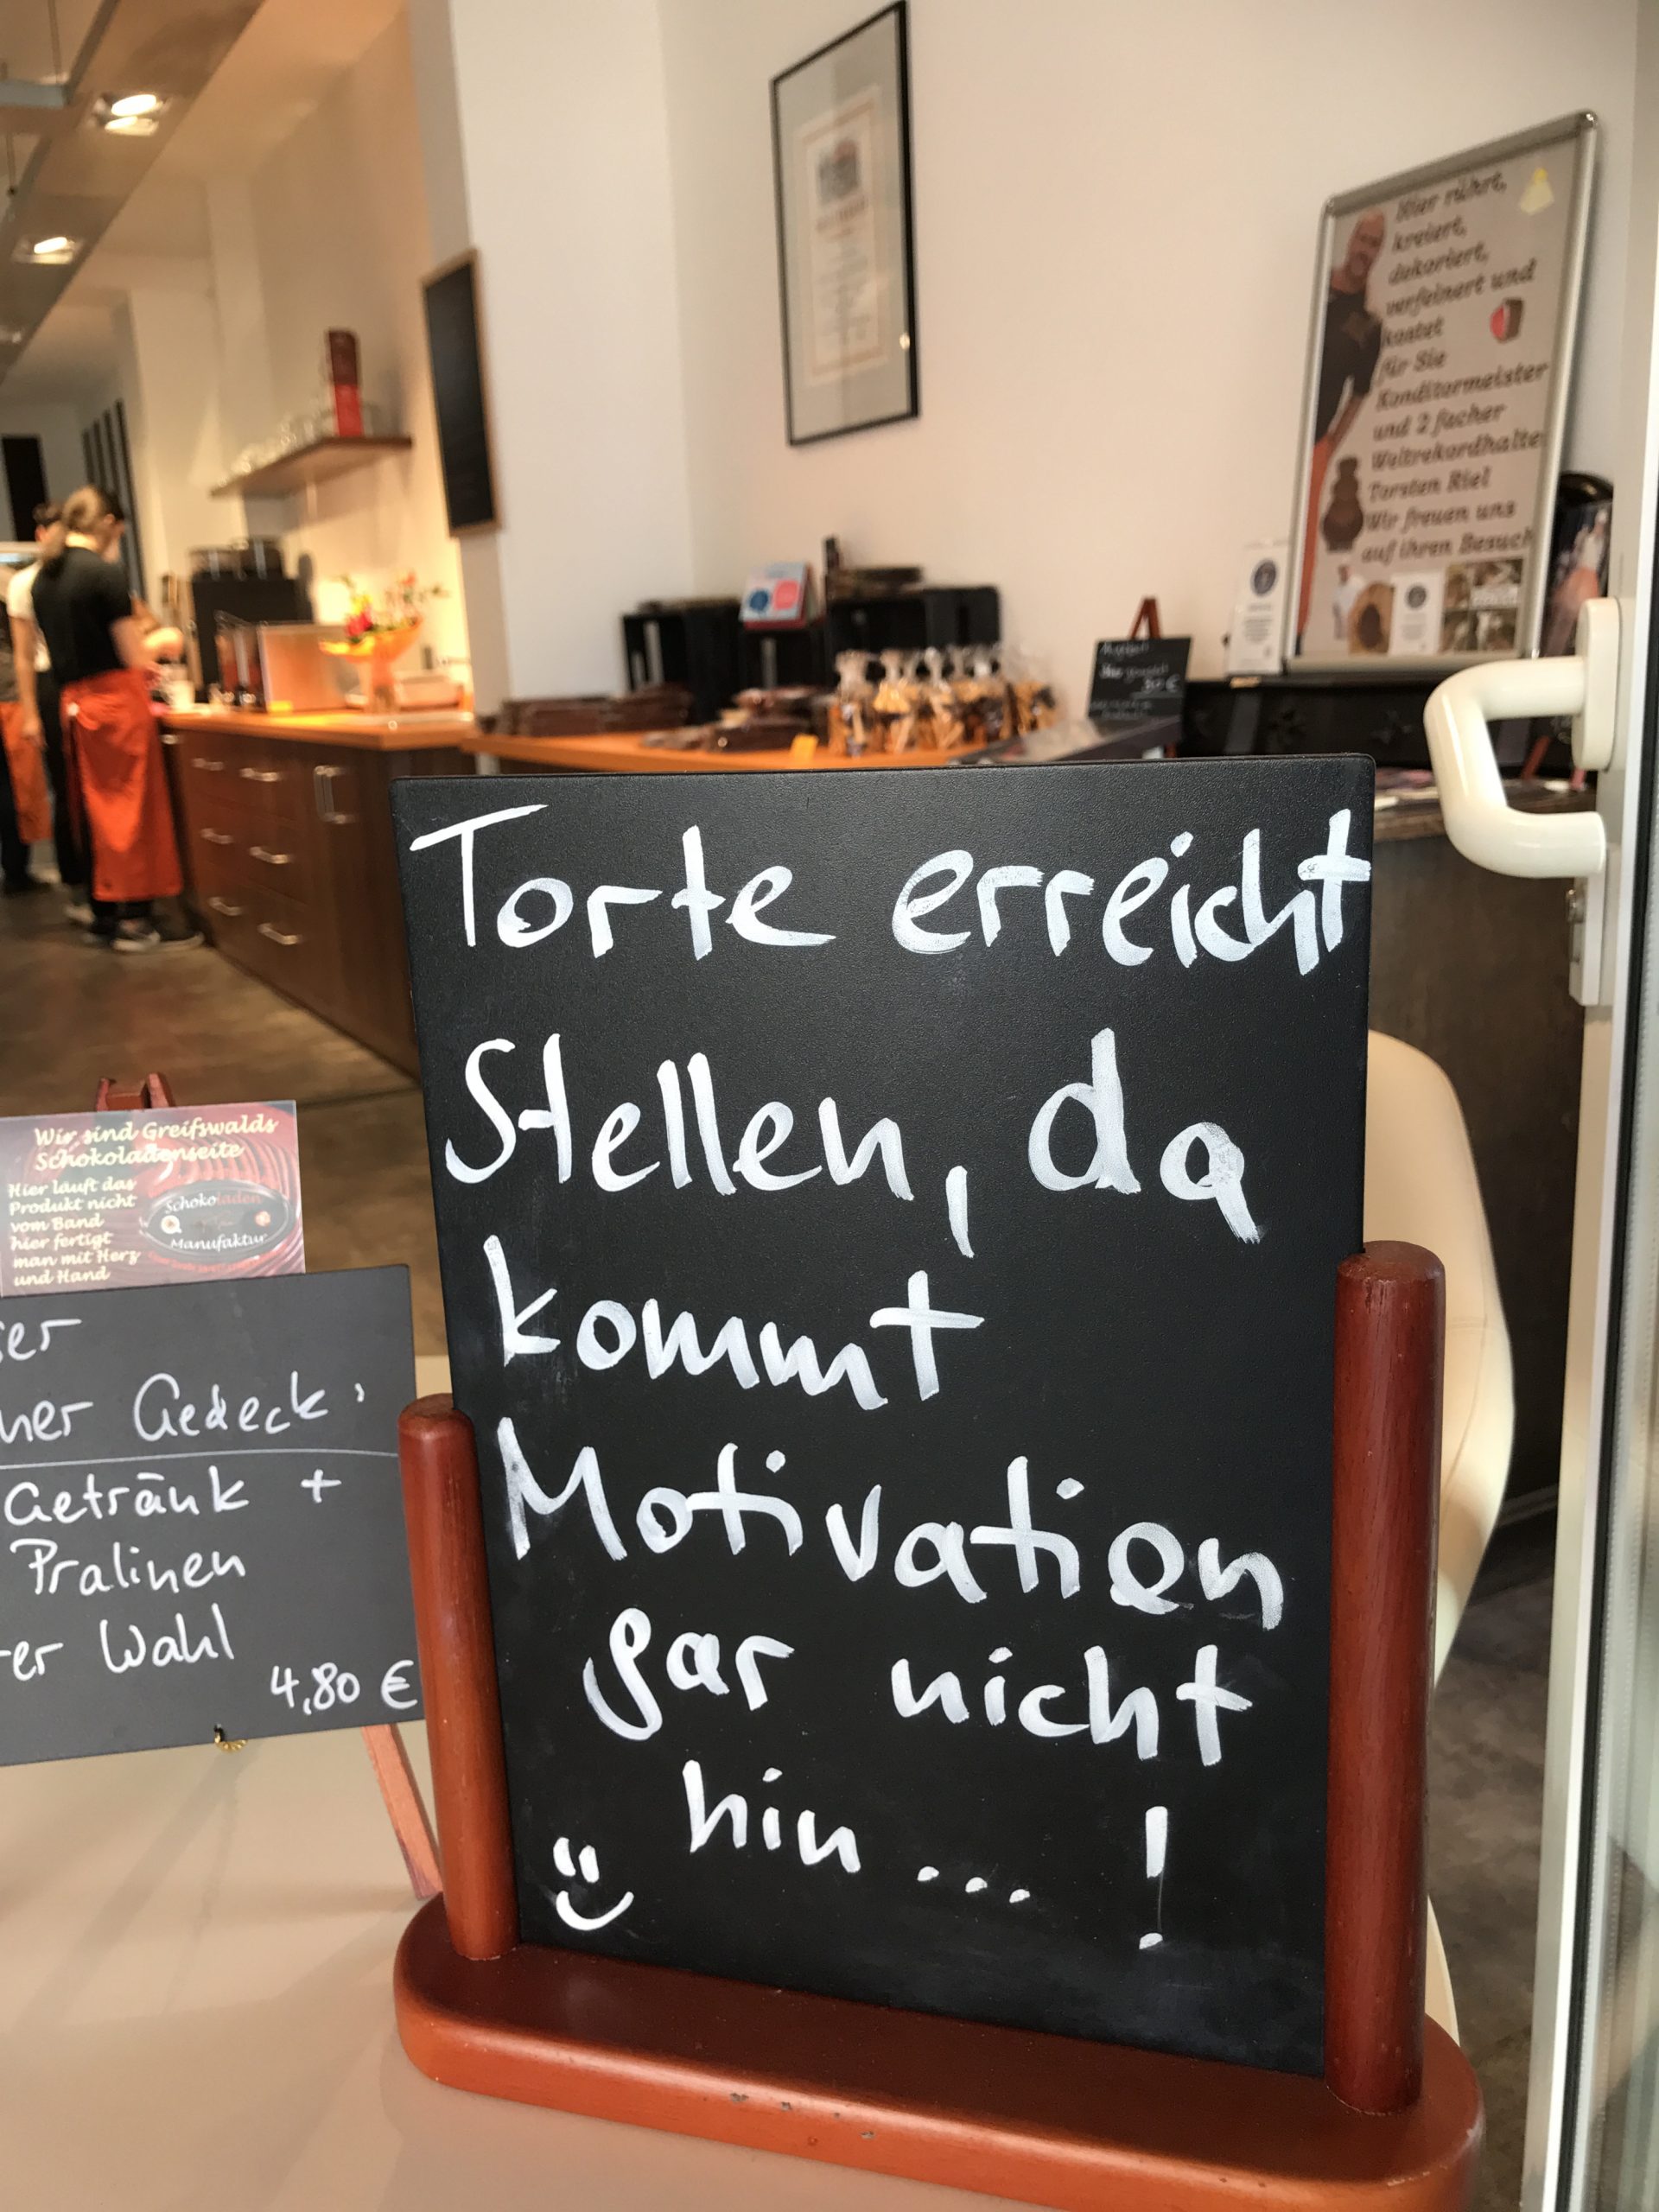 Torte erreicht
Stellen, da
kommt
Motivation
gar nicht
hin...!
Wir sind Greifswalds
Schokoladenseite
Hier läuft das
Produkt nicht
vom Band
hier fertigt
man mit Herz
und Hand
Schokoladen
Manufaktur
Gedeck
Getränk +
Pralinen
Wahl
4,80 €
Hier rührt,
kreiert,
dekoriert,
verfeinert und
kostet
für Sie
Konditormeister
und 2 facher
Weltrekordhalter
Torsten Riel
Wir freuen uns
auf ihren Besuch